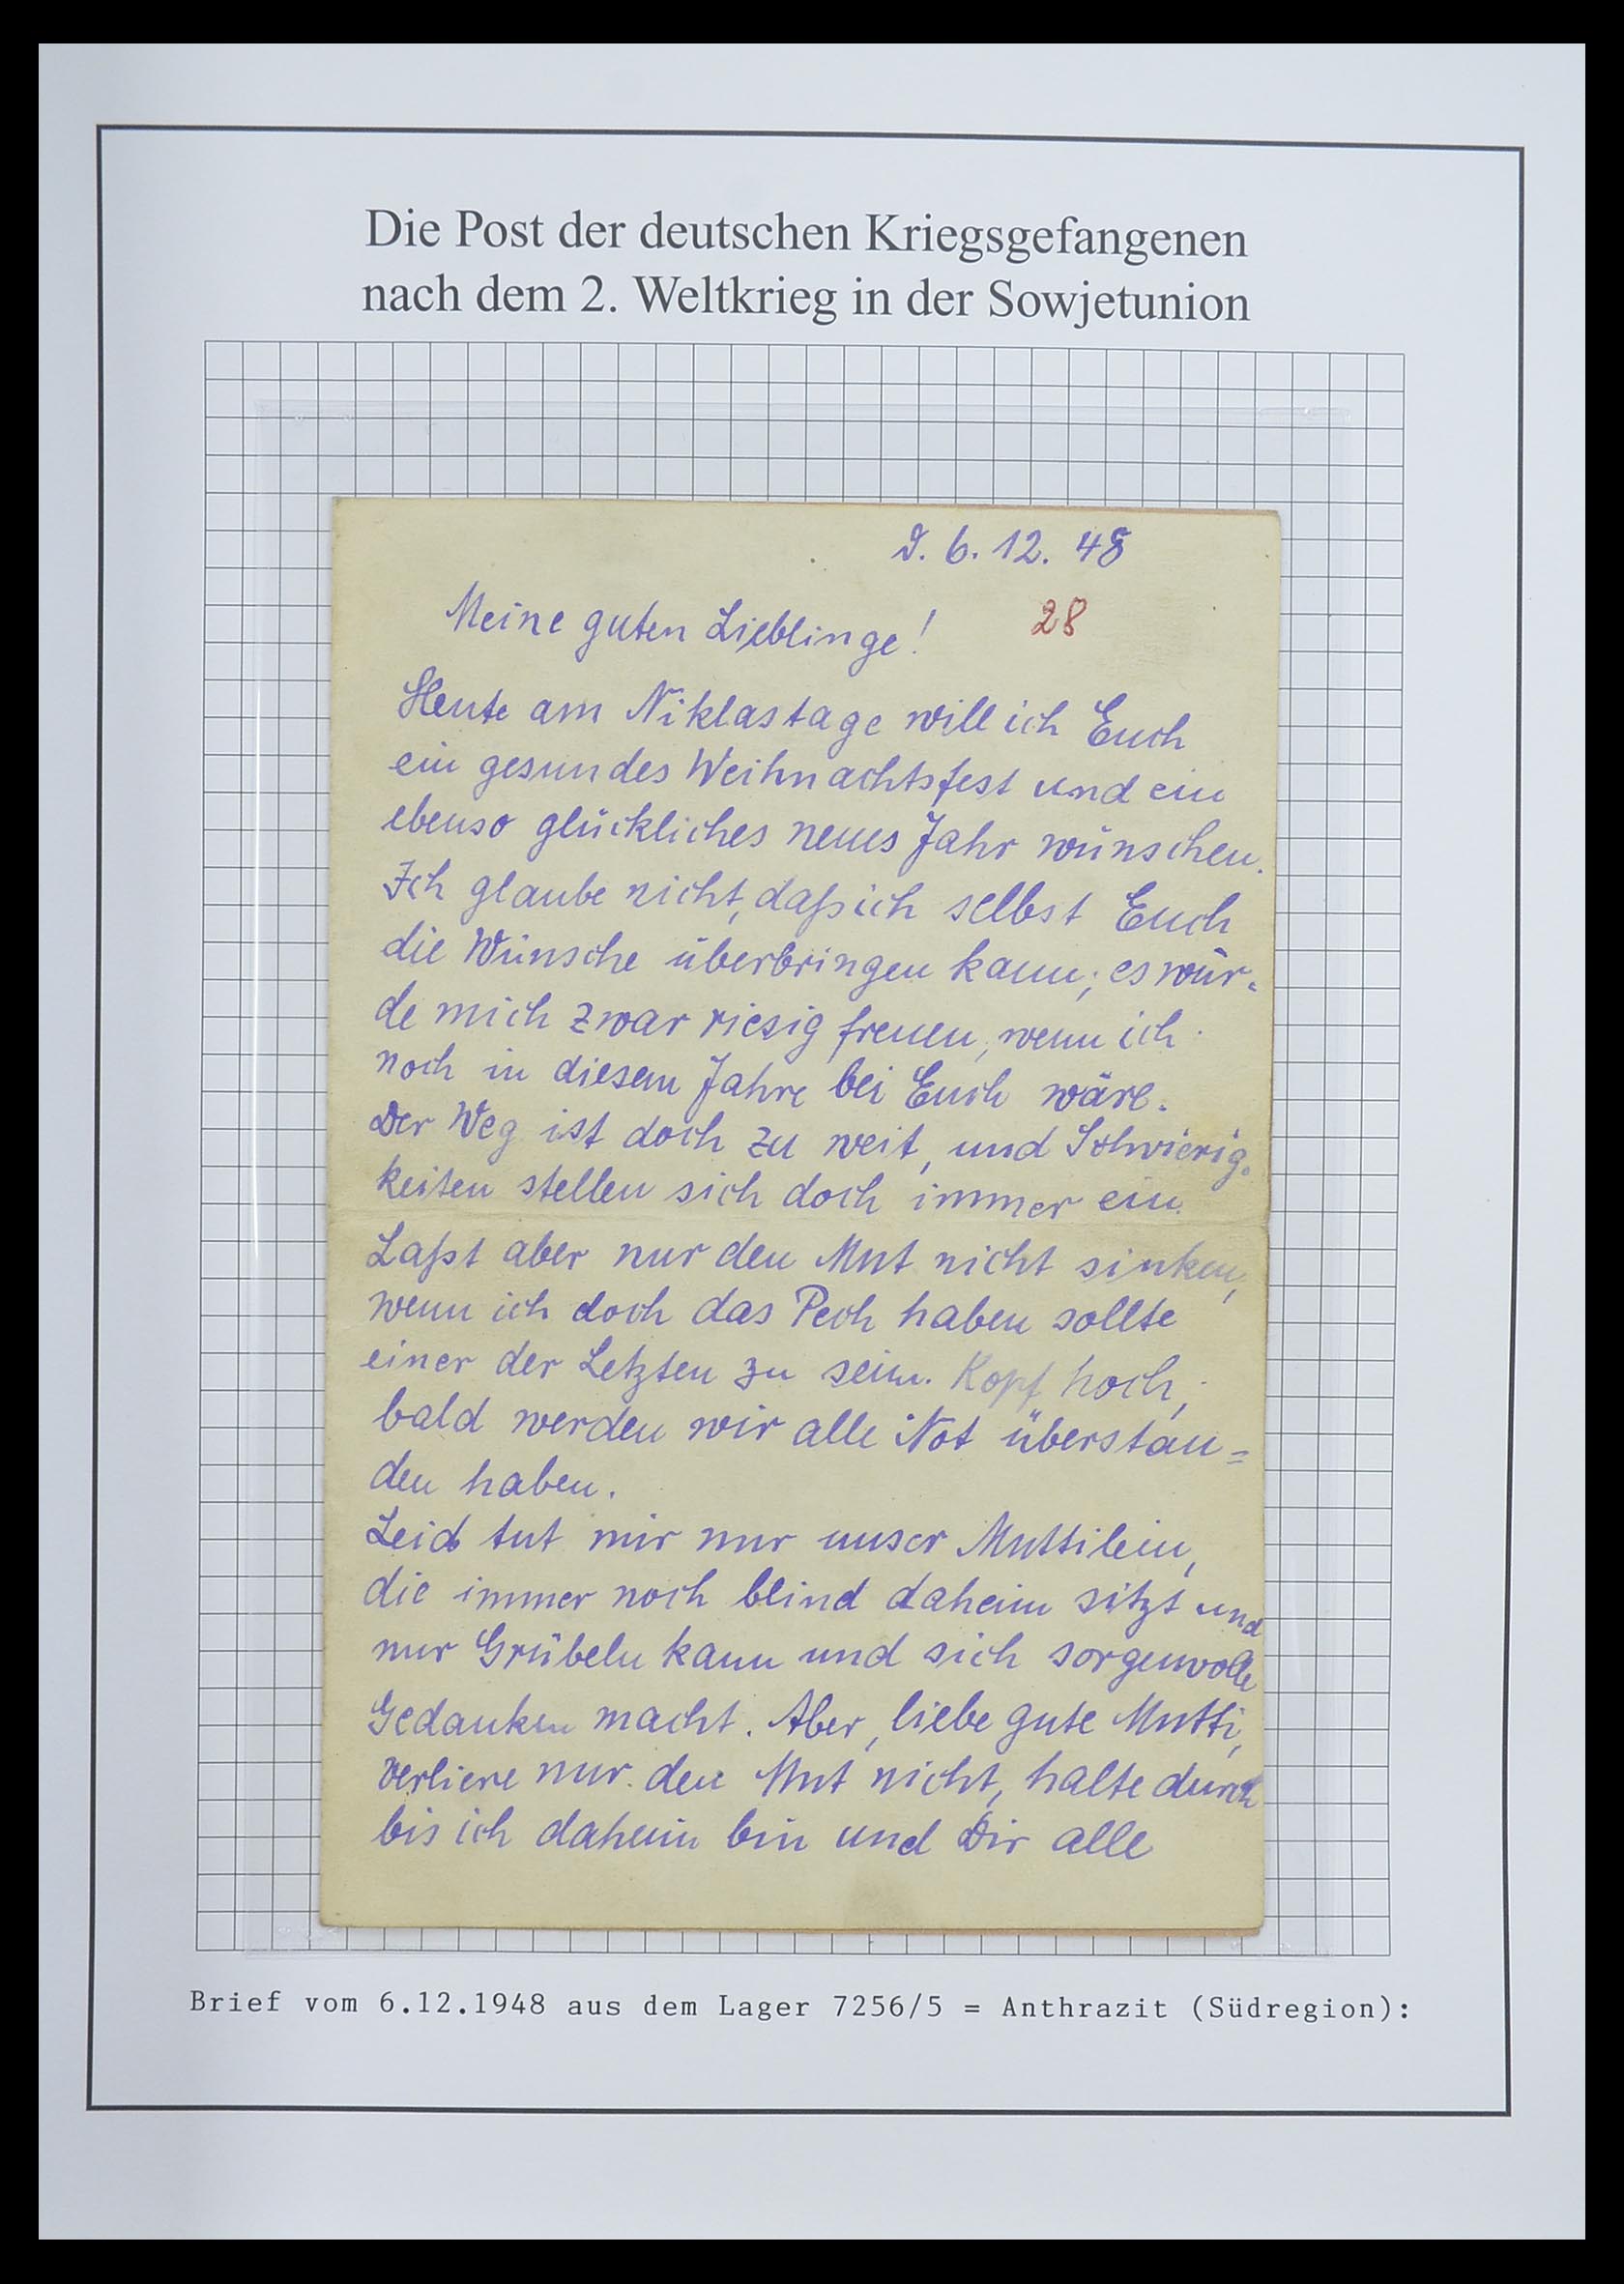 Die Post der deutschen Kriegsgefangenen
nach dem 2. Weltkrieg in der Sowjetunion
d. 6. 12. 48
Meine guten Lieblinge!
28
Heute am Niklastage will ich Euch
ein gesundes Weihnachtsfest und ein
ebenso glückliches neues Jahr wünschen.
Ich glaube nicht, daß ich selbst Euch
die Wünsche überbringen kann; es wür-
de mich zwar riesig freuen, wenn ich
noch in diesem Jahre bei Euch wäre.
Der Weg ist doch zu weit, und Schwierig-
keiten stellen sich doch immer ein.
Laßt aber nur den Mut nicht sinken,
wenn ich doch das Pech haben sollte
einer der Letzten zu sein. Kopf hoch,
bald werden wir alle Not überstan=
den haben.
Leid tut mir nur unser Muttilein,
die immer noch blind daheim sitzt und
nur Grübeln kann und sich sorgenvolle
Gedanken macht. Aber, liebe gute Mutti,
verliere nur den Mut nicht, halte durch
bis ich daheim bin und Dir alle
Brief vom 6.12.1948 aus dem Lager 7256/5 = Anthrazit (Südregion):